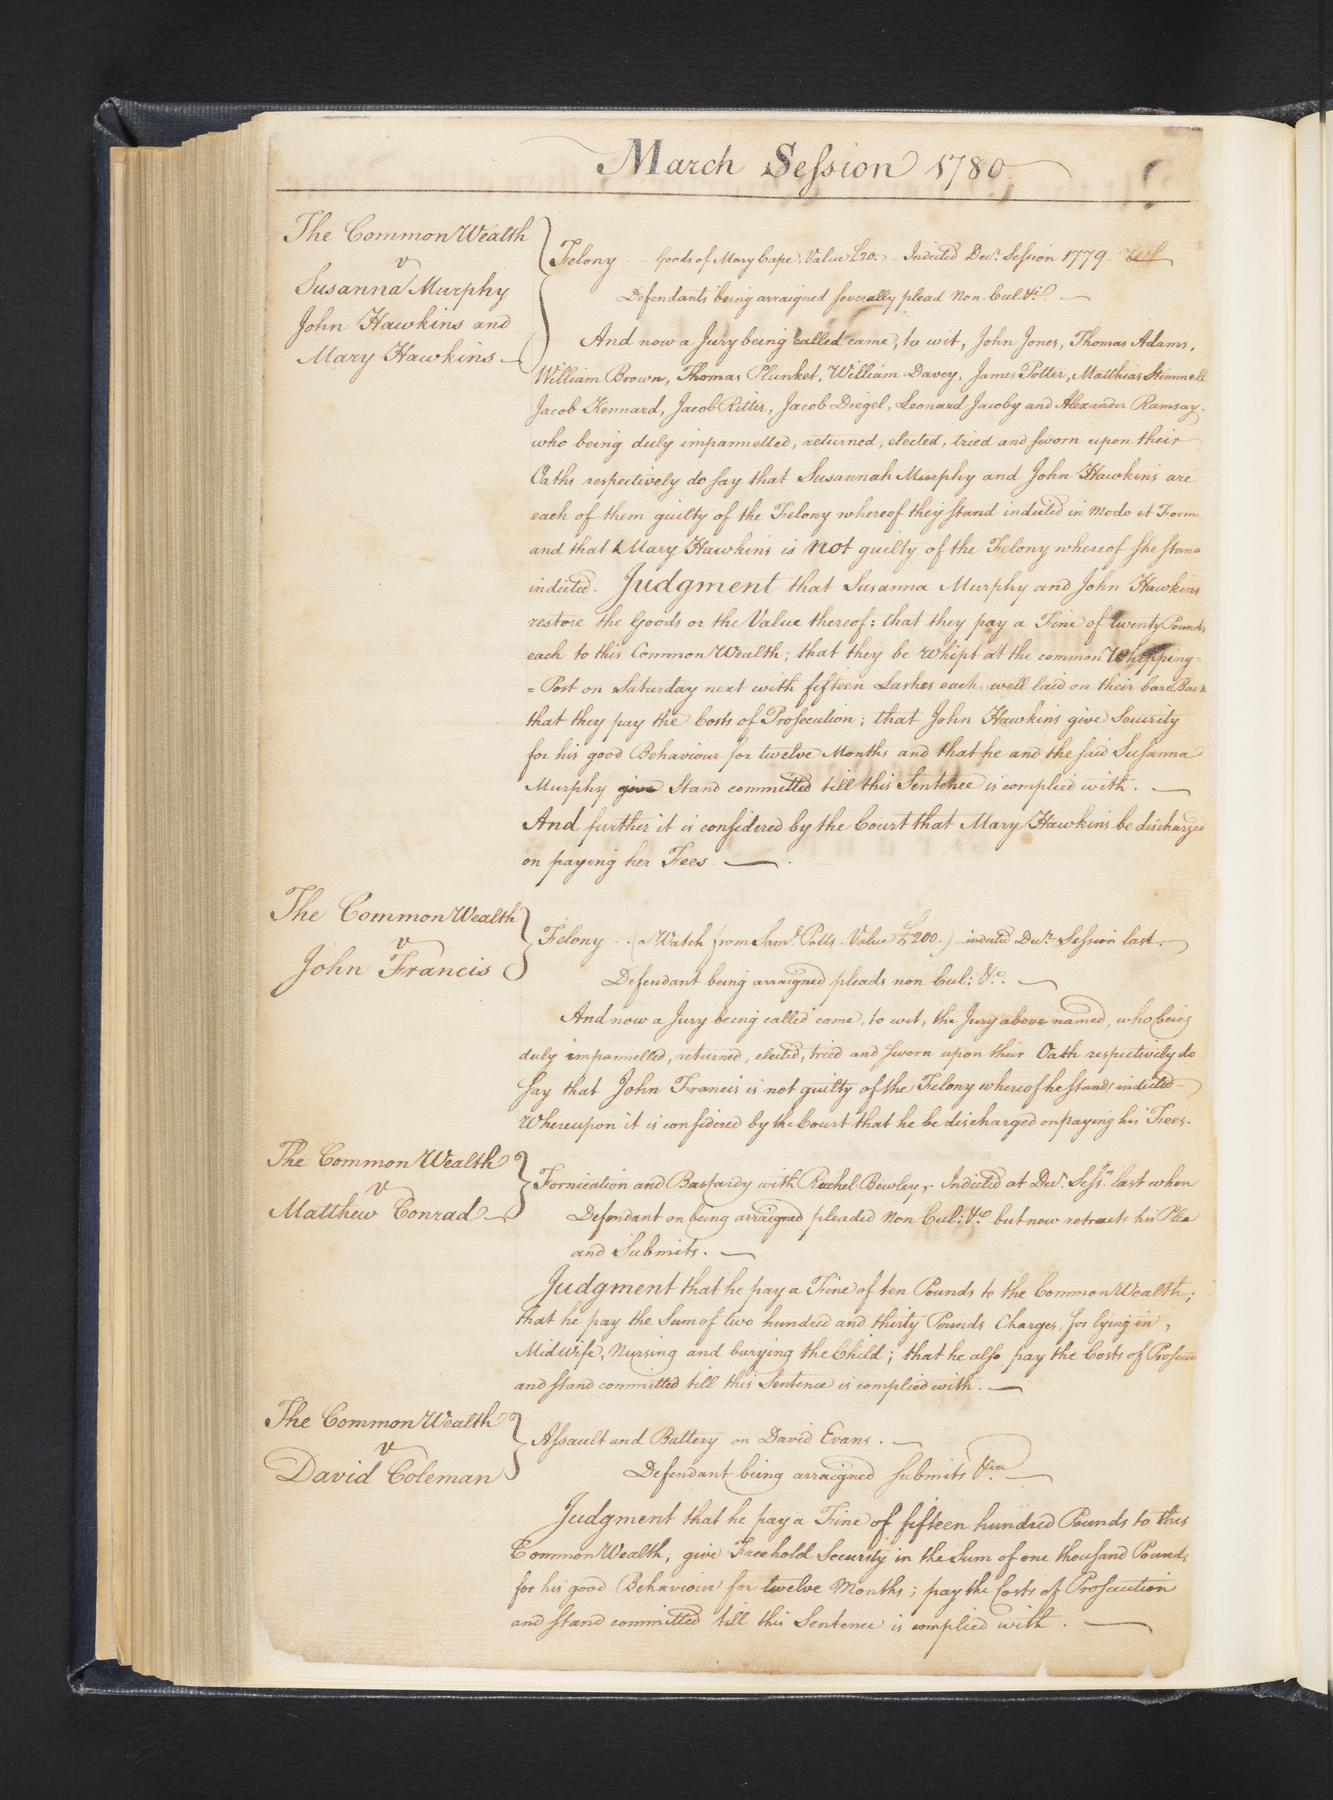 March Session 1780
The CommonWealth
v
Susanna Murphy
John Hawkins and
Mary Hawkins
Felony Goods of Mary Cape. Value £20. Indicted Decr. Session 1779
Defendants being arraigned severally plead Non. Cul &c.
And now a Jury being called came, to wit, John Jones, Thomas Adams,
William Brown, Thomas Plunket, William Davey, James Potter, Matthias
Jacob Kennard, Jacob Ritter, Jacob Deegel, Leonard Jacoby and Alexander Ramsay.
who being duly impannelled, returned, elected, tried and sworn upon their
Oaths respectively do say that Susannah Murphy and John Hawkins are
each of them guilty of the Felony whereof they stand indicted in Modo et Forma
and that Mary Hawkins is not guilty of the Felony whereof she stand
indicted. Judgment that Susanna Murphy and John Hawkins
restore the Goods or the Value thereof: that they pay a Fine of twenty Pounds
each to this CommonWealth; that they be Whipt at the common Whipping=
=Post on Saturday next with fifteen Lashes each, well laid on their bare Back
that they pay the Costs of Prosecution; that John Hawkins give Security
for his good Behaviour for twelve Months and that he and the said Susanna
Murphy give Stand committed till this Sentence is complied with.
And further it is considered by the Court that Mary Hawkins be discharged
on paying her Fees.
The CommonWealth
v
John Francis
Felony (a Watch from Saml. Potts. Value £200.) indicted Decr. Session last.
Defendant being arraigned pleads non Cul: &c.
And now a Jury being called came, to wit, the Jury above named, who being
duly impannelled, returned, elected, tried and sworn upon their Oath respectively do
say that John Francis is not guilty of the Felony whereof he stands indicted
Whereupon it is considered by the Court that he be discharged on paying his Fees.
The CommonWealth
v
Matthew Conrad
Fornication and Bastardy with Rachel Bewley, Indicted at Decr. Sessn. last when
Defendant on being arraigned pleaded Non Cul: &c. but now retracts his Plea
and Submits.
Judgment that he pay a Fine of ten Pounds to the CommonWealth;
that he pay the Sum of two hundred and thirty Pounds Charges, for lying in,
Midwife, Nursing and burying the Child; that he also pay the Costs of
and stand committed till this Sentence is complied with.
The CommonWealth
v
David Coleman
Assault and Battery on David Evans.
Defendant being arraigned submits
Judgment that he pay a Fine of fifteen hundred Pounds to this
CommonWealth, give Freehold Security in the Sum of one thousand Pounds
for his good Behaviour for twelve Months; pay the Costs of Prosecution
and stand committed till this Sentence is complied with.